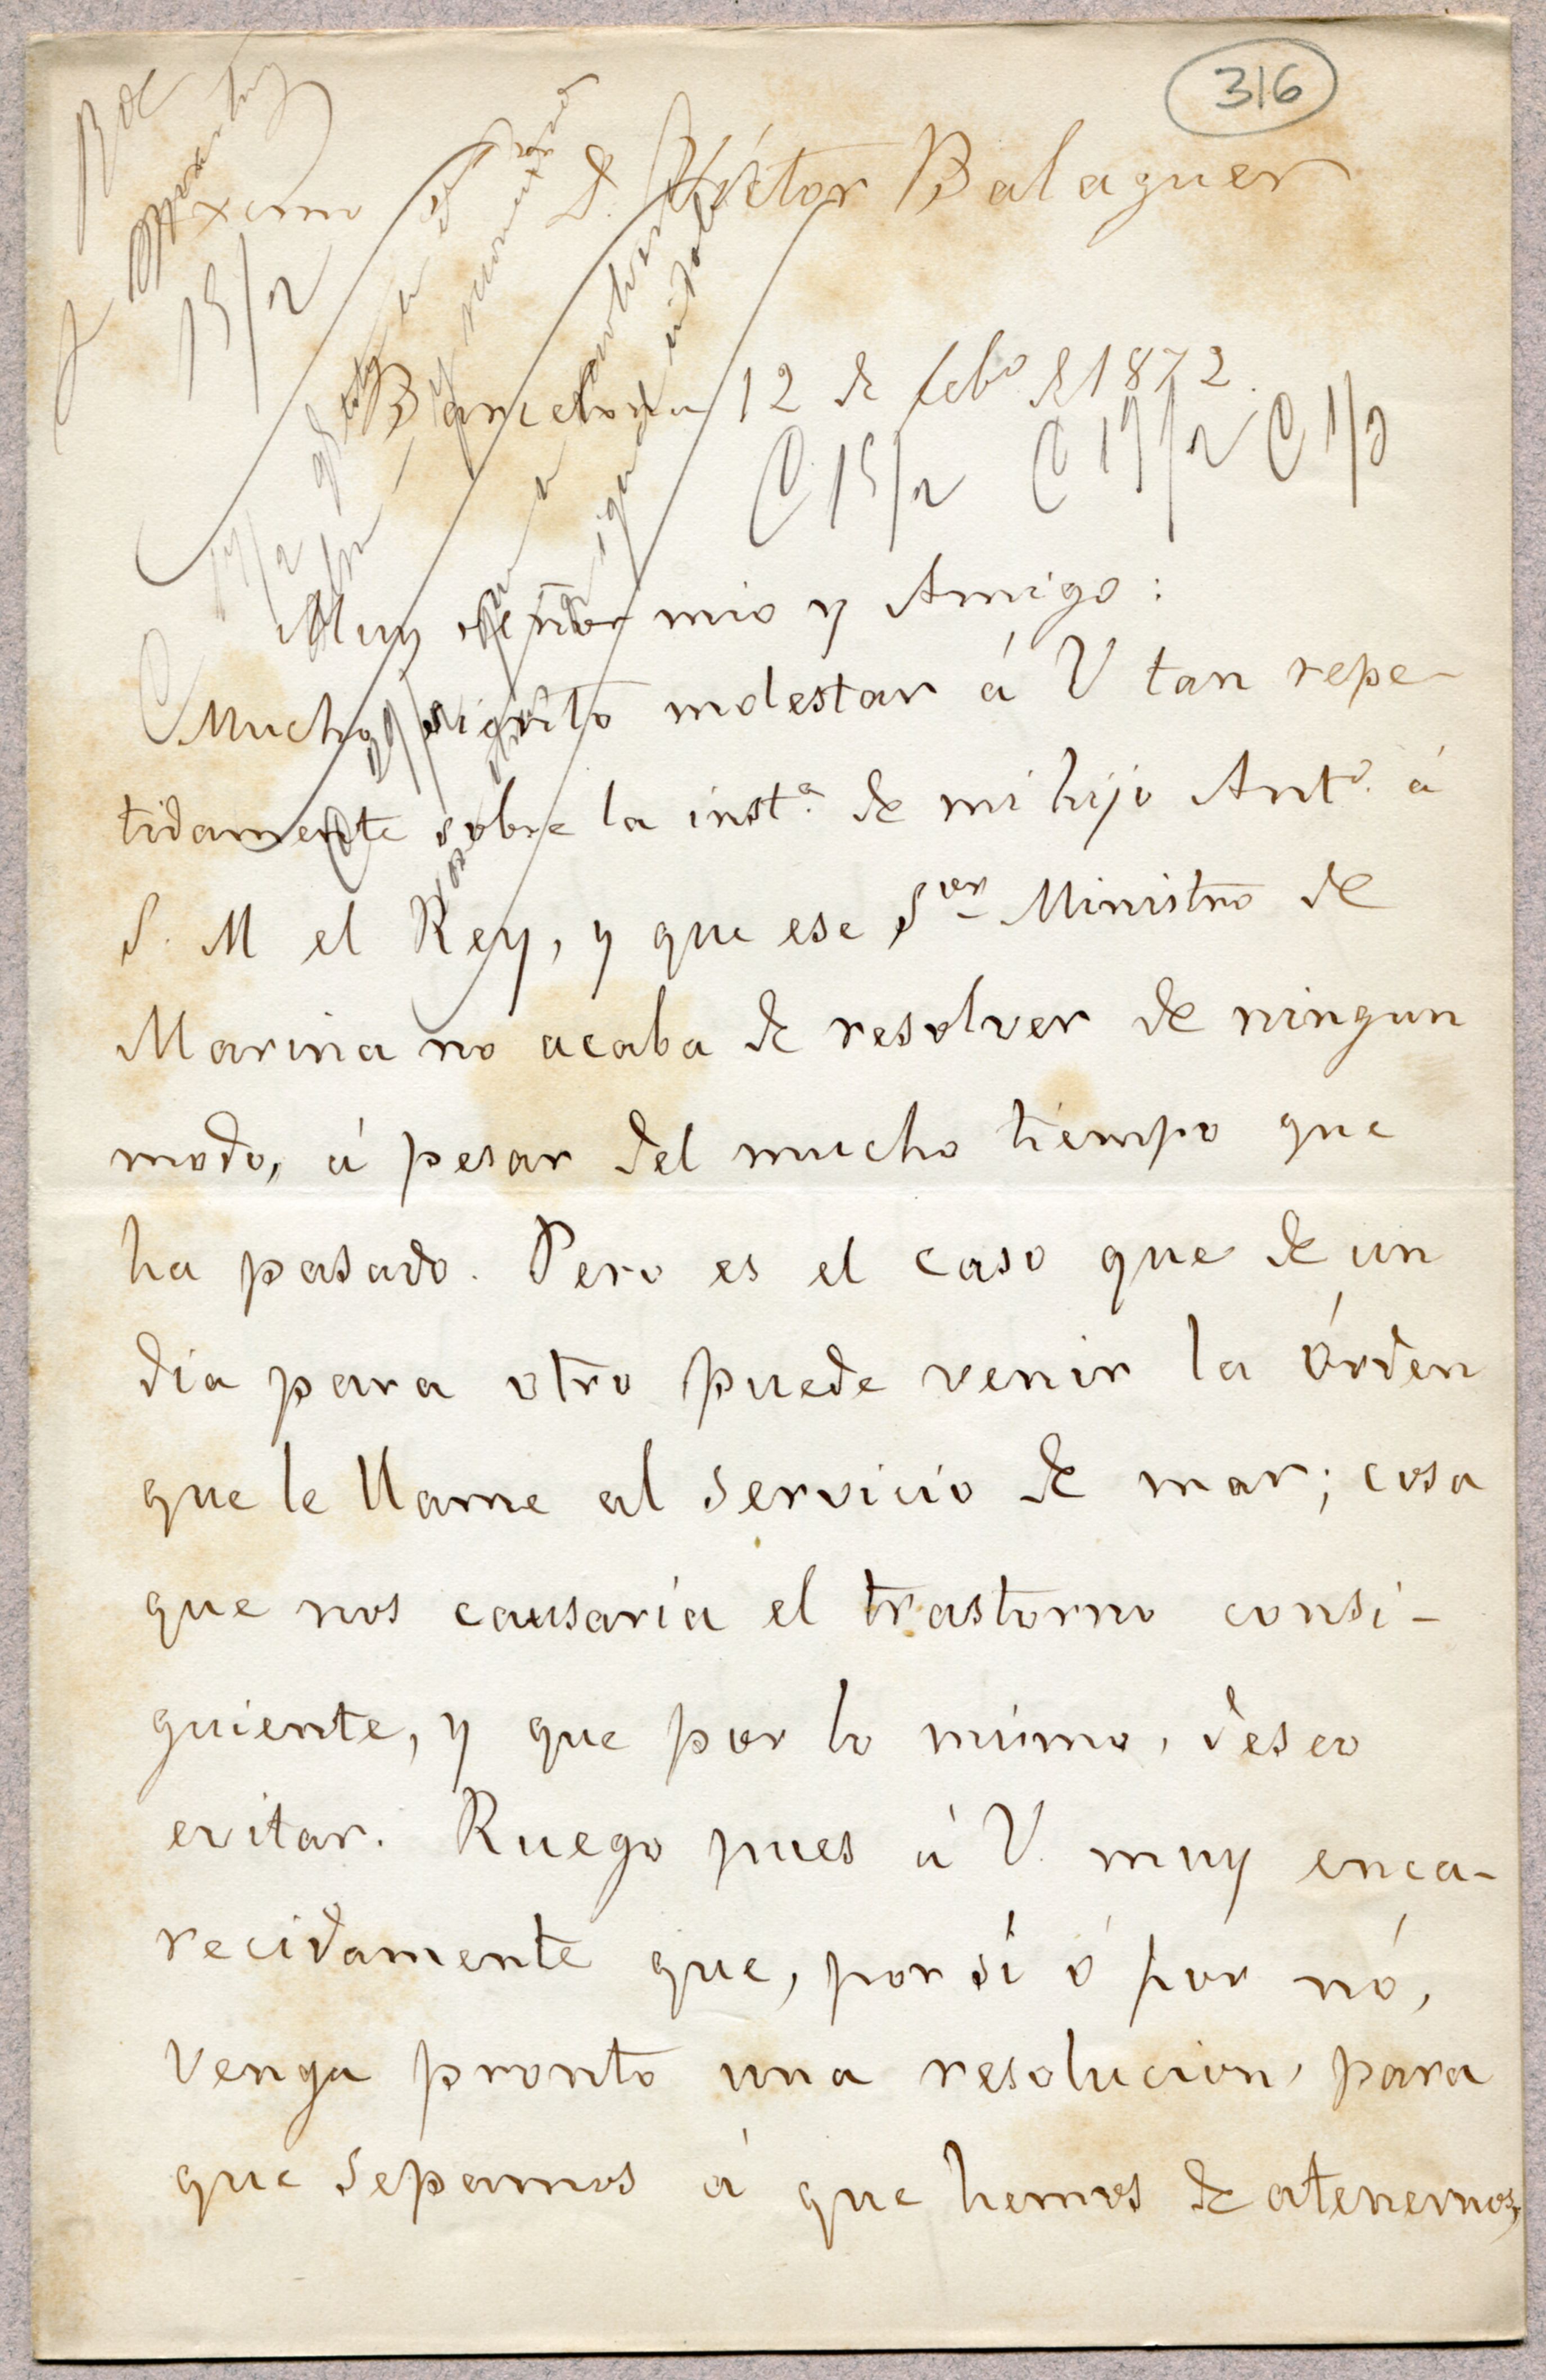 316
Exmo D. Víctor Balaguer
15/2
Barcelona 12 de febº de 1872.
C. 15/2 C 17/2 C 1/3
Muy señor mio y Amigo:
Mucho siento molestar á V tan repe-
tidamente sobre la instª de mi hijo Antº. á
S. M el Rey, y que ese Sor Ministro de
Marina no acaba de resolver de ningun
modo, á pesar del mucho tiempo que
ha pasado. Pero es el caso que de un
dia para otro puede venir la órden
que le llame al servicio de mar; cosa
que nos causaría el trastorno consi-
guiente, y que por lo mismo, deseo
evitar. Ruego pues á V. muy enca-
recidamente que, por sí ó por nó,
venga pronto una resolucion, para
que sepamos á que hemos de atenernos,